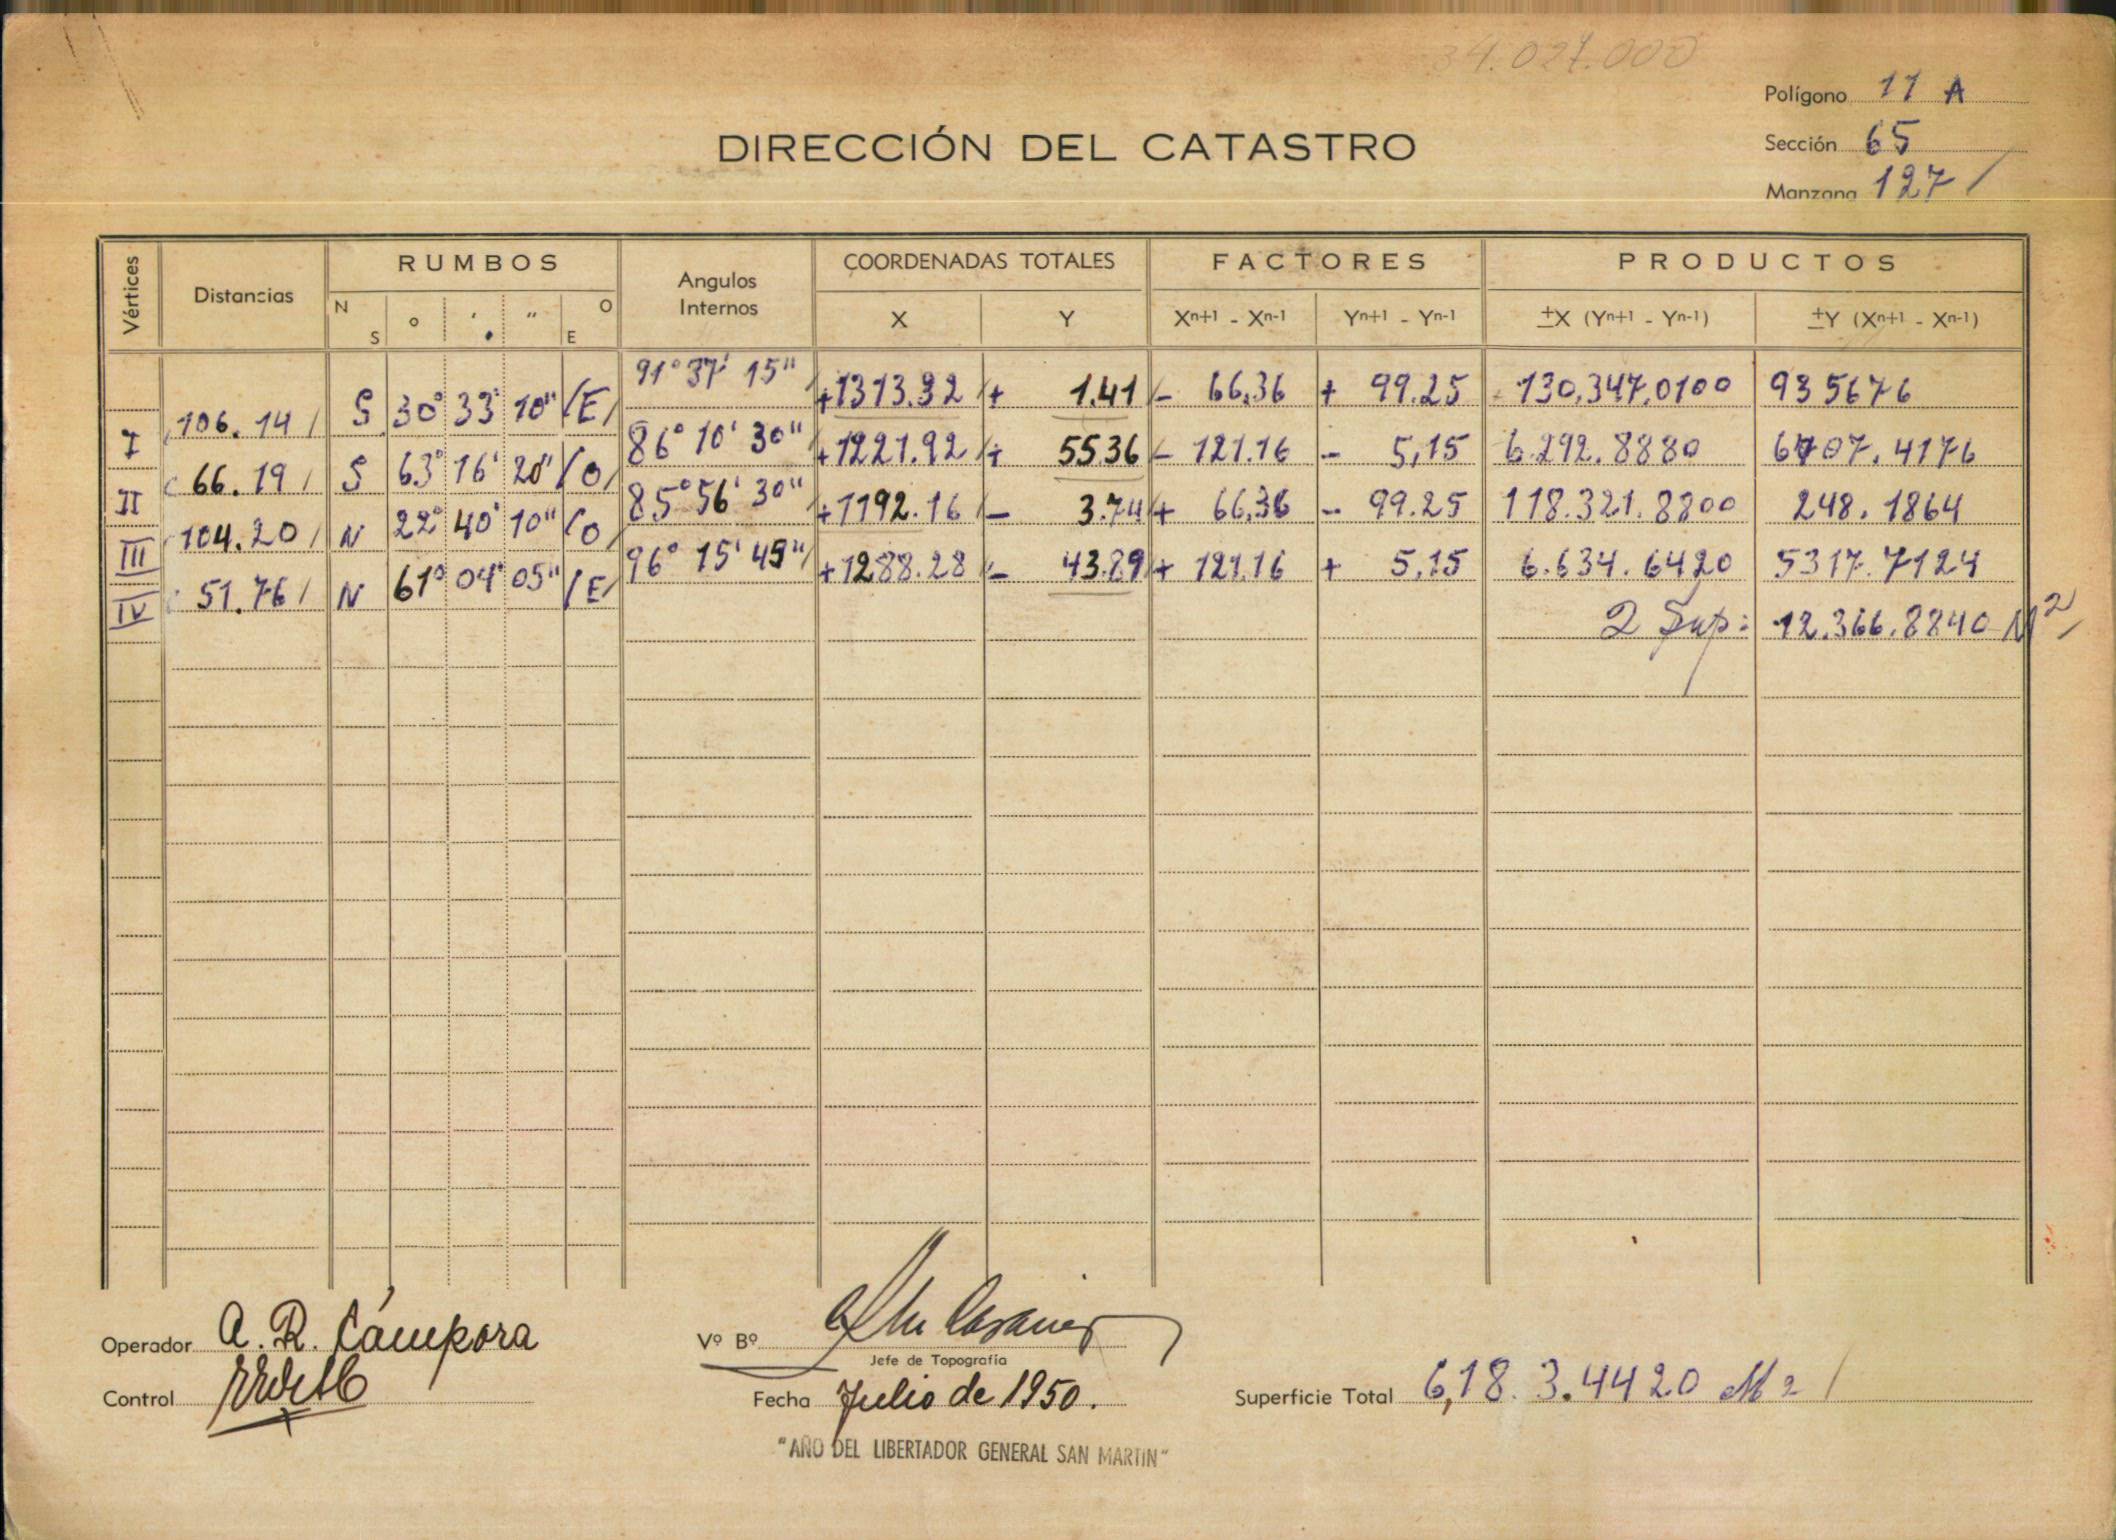 34.027.000
Polígono 11 A
DIRECCIÓN DEL CATASTRO
Sección 65
Manzana 127 /
Vértices Distancias RUMBOS Angulos Internos COORDENADAS TOTALES FACTORES PRODUCTOS
N S ° ' " O E X Y Xn+1 - Xn-1 Yn+1 - Yn-1 ±X (Yn+1 - Yn-1) ±Y (Xn+1 - Xn-1)
I 106.14 / S 30° 33' 10" / E / 91° 37' 15" / +1313.32 / + 1.41 / - 66,36 + 99.25 130,347,0100 935676
II 66.19 / S 63° 16' 20" / O / 86° 10' 30" / +1221.92 / + 55.36 / - 121.16 - 5,15 6.292.8880 6707.4176
III 104.20 / N 22° 40' 10" / O / 85° 56' 30" / +1192.16 / - 3.74 / + 66,36 - 99.25 118.321.8800 248.1864
IV 51.76 / N 61° 04' 05" / E / 96° 15' 45" / +1288.28 / - 43.89 / + 121.16 + 5,15 6.634.6420 5317.7124
2 Sup: 12.366.8840 M2 /
Operador A. R. Cámpora Vº Bº
Jefe de Topografía
Control Fecha Julio de 1950. Superficie Total 6,18.3.4420 M2 /
"AÑO DEL LIBERTADOR GENERAL SAN MARTIN"